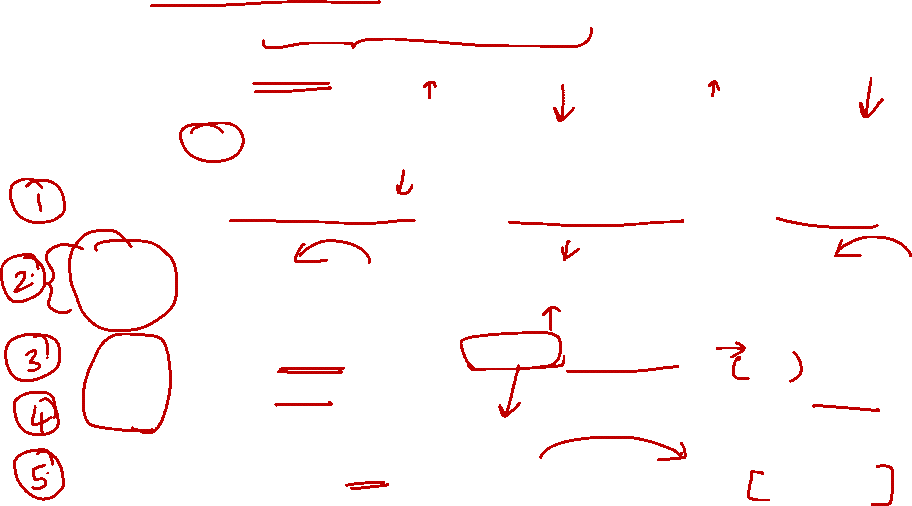 1
2
3
4
5
( )
[ ]